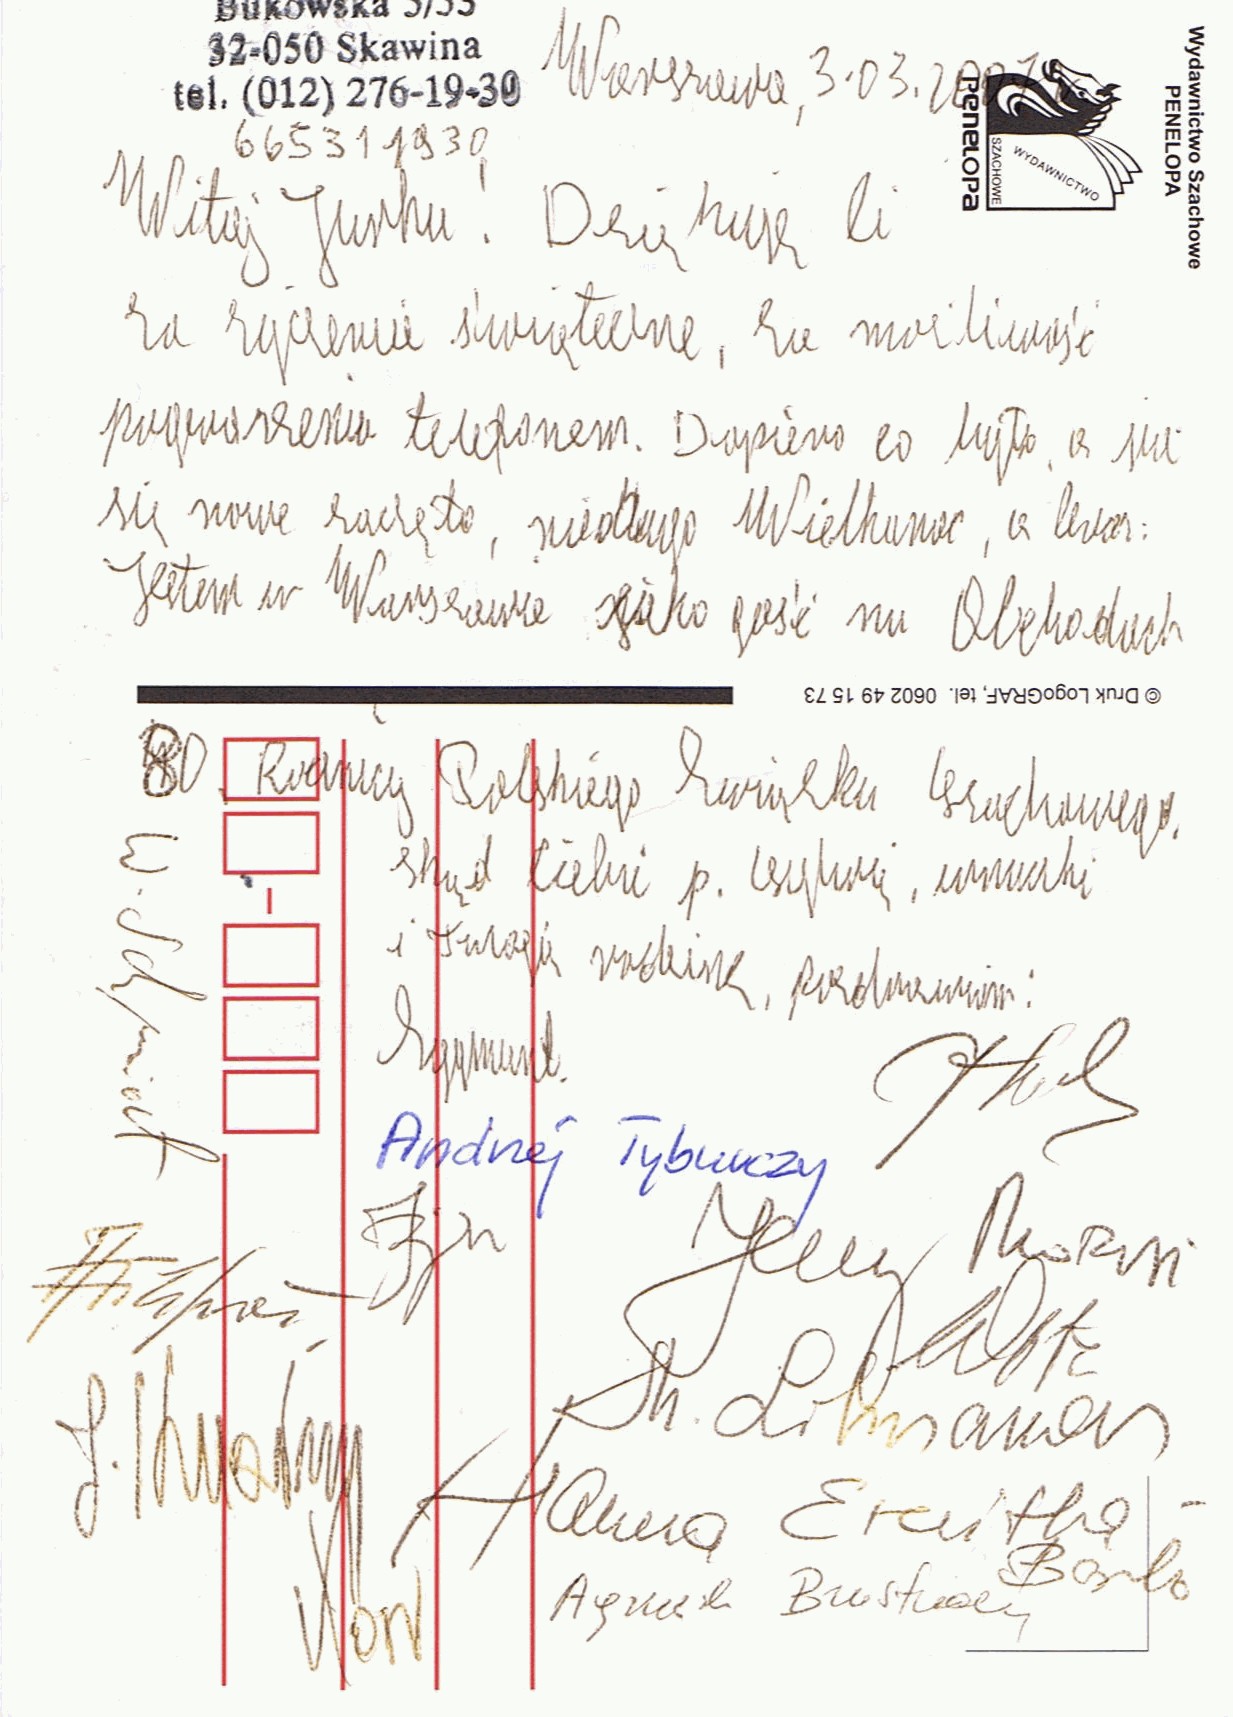 Bukowska 5/55
32-050 Skawina
tel. (012) 276-19-30
665311930
Warszawa, 3.03.2007
Wydawnictwo Szachowe
PENELOPA
PENELOPA
SZACHOWE
WYDAWNICTWO
Witaj Jurku! Dziękuję Ci
za życzenia świąteczne, za możliwość
pogwarzenia telefonem. Dopiero co było, a już
się nowe zaczęło, niedługo Wielkanoc, a teraz:
Jestem w Warszawie jako gość na Obchodach
© Druk LogoGRAF, tel. 0602 49 15 73
80. Rocznicy Polskiego Związku Szachowego,
skąd Ciebie p. , wnuczki
i rodzinę, pozdrawiam:
Zygmunt.
W. Schmidt
Andrzej Tyburczy
Jerzy Moraś
Sh. Litmanowicz
Hanna Ereńska
Barlo
Agnieszka Brustman